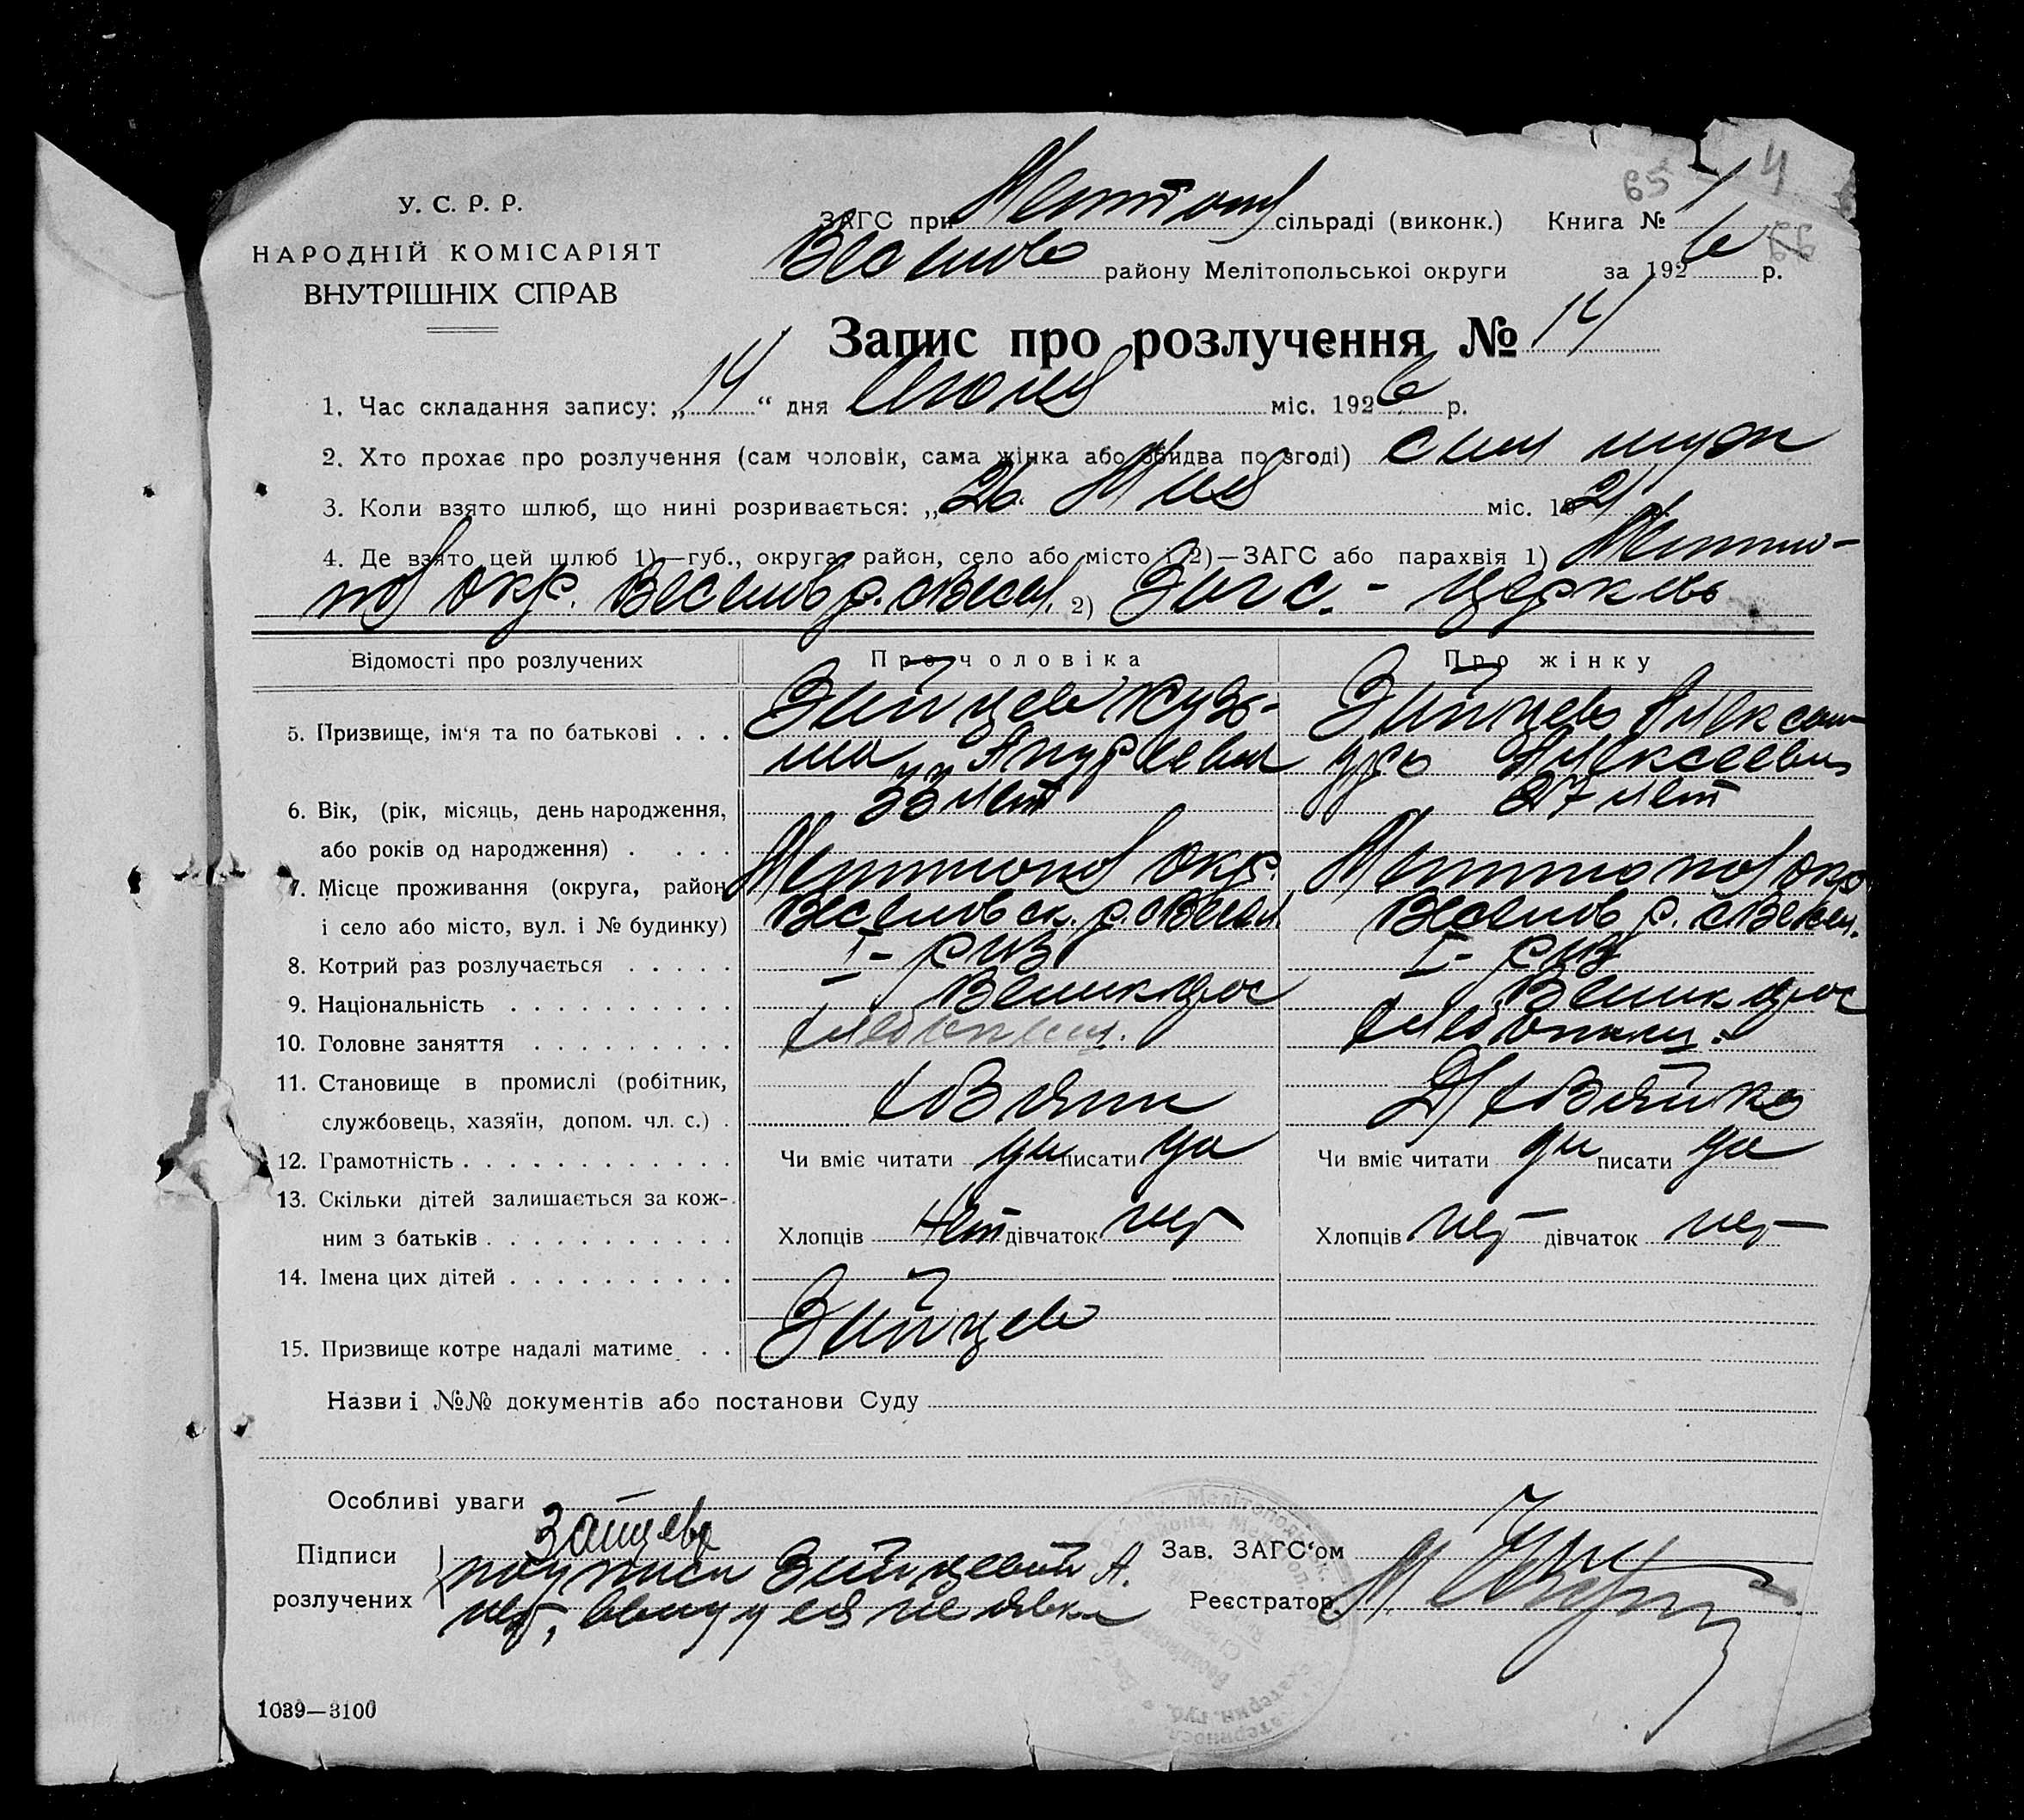 65 4
66
У. С. Р. Р.
НАРОДНІЙ КОМІСАРІЯТ
ВНУТРІШНІХ СПРАВ
ЗАГС при сільраді (виконк.) Книга № 1
району Мелітопольської округи за 1926 р.
Запис про розлучення № 14
1. Час складання запису: „14“ дня Июля міс. 1926 р.
2. Хто прохає про розлучення (сам чоловік, сама жінка або обидва по згоді) сам муж
3. Коли взято шлюб, що нині розривається: „26“ Мая міс. 1921
4. Де взято цей шлюб 1)—губ., округа, район, село або місто і 2)—ЗАГС або парахвія 1) Мелито-
пол окр. Веселов р. с Весел. 2) Загс. - церковь
Відомості про розлучених Про чоловіка Про жінку
5. Призвище, ім‘я та по батькові . . . Зайцев Кузь- Зайцева Алексан-
ма Андреевич дра Алексеевна
6. Вік, (рік, місяць, день народження, 33 лет 27 лет
або років од народження) . . . .
7. Місце проживання (округа, район Мелитопол окр. Мелитопол окр
і село або місто, вул. і № будинку) Веселовск. р. с Весел Веселов р. с Весел.
8. Котрий раз розлучається . . . . . I - раз I - раз
9. Національність . . . . . . . . . . Великорос Великорос
10. Головне заняття . . . . . . . . . хлебопаш. хлебопаш.
11. Становище в промислі (робітник,
службовець, хазяїн, допом. чл. с.) . хозяин Д/хозяйка
12. Грамотність . . . . . . . . . . . . Чи вміє читати да писати да Чи вміє читати да писати да
13. Скільки дітей залишається за кож-
ним з батьків . . . . . . . . . . . Хлопців нет дівчаток нет Хлопців нет дівчаток нет
14. Імена цих дітей . . . . . . . . . .
15. Призвище котре надалі матиме . . Зайцев
Назви і №№ документів або постанови Суду
Особливі уваги
Зайцев
Підписи подписи Зайцевой А. Зав. ЗАГС‘ом
розлучених нет, ввиду ея не явки Реєстратор
1039—3100